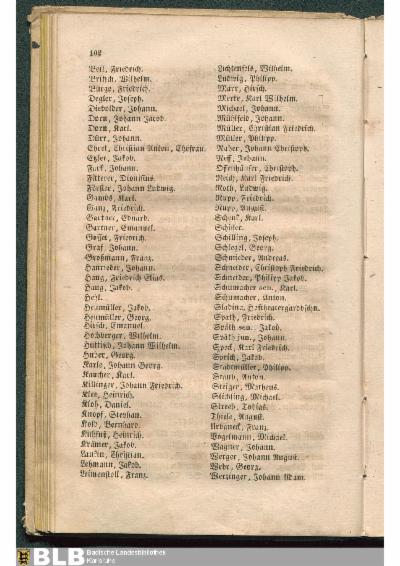 102
Beil, Friedrich.
Britsch, Wilhelm.
Bürge, Friedrich.
Degler, Joseph.
Diebolder, Johann.
Dorn, Johann Jacob.
Dorn, Karl.
Dürr, Johann.
Ehret, Christian Anton, Ehefrau.
Etzler, Jakob.
Funk, Johann.
Fitterer, Dionisius.
Förster, Johann Ludwig.
Gambs, Karl.
Ganz, Friedrich.
Gartner, Eduard.
Gartner, Emanuel.
Friedrich.
Graf, Johann.
Großmann, Franz.
Hanreder, Johann.
Haug, Friedrich Elias.
Haug, Jakob.
Heß.
Heumüller, Jakob.
Heumüller, Georg.
Hirsch, Emanuel.
Hochberger, Wilhelm.
Johann Wilhelm.
Huber, Georg.
Karle, Johann Georg.
Karcher, Karl.
Killinger, Johann Friedrich.
Klee, Heinrich.
Kloß, Daniel.
Knopf, Stephan.
Kolb, Bernhard.
Heinrich.
Krämer, Jakob.
Christian.
Lehmann, Jakob.
Leimenstoll, Franz.
Lichtenfels, Wilhelm.
Ludwig, Philipp.
Marx, Hirsch.
Merke, Karl Wilhelm.
Michael, Johann.
Mühlfeld, Johann.
Müller, Christian Friedrich.
Müller, Philipp.
Naher, Johann Christoph.
Neff, Johann.
Offenhäuser, Christoph.
Reich, Karl Friedrich.
Roth, Ludwig.
Rupp, Friedrich.
Rupp, August.
Schenk, Karl.
Schiler.
Schilling, Joseph.
Schlegel, Georg.
Schmieder, Andreas.
Schneider, Christoph Friedrich.
Schneider, Philipp Jakob.
Schumacher sen., Karl.
Schumacher, Anton.
Sladina,
Späth, Friedrich.
Späth sen., Jakob.
Späth jun., Johann.
Speck, Karl Friedrich.
Sprich, Jakob.
Stadtmüller, Philipp.
Staub, Anton.
Steiger, Matheus.
Stribling, Michael.
Stroh, Tobias.
Thiele, August.
Urbaneck, Franz.
Vogelmann, Michael.
Wagner, Johann.
Weeger, Johann August.
Wehr, Georg.
Werzinger, Johann Adam.
BLB Badische Landesbibliothek
Karlsruhe